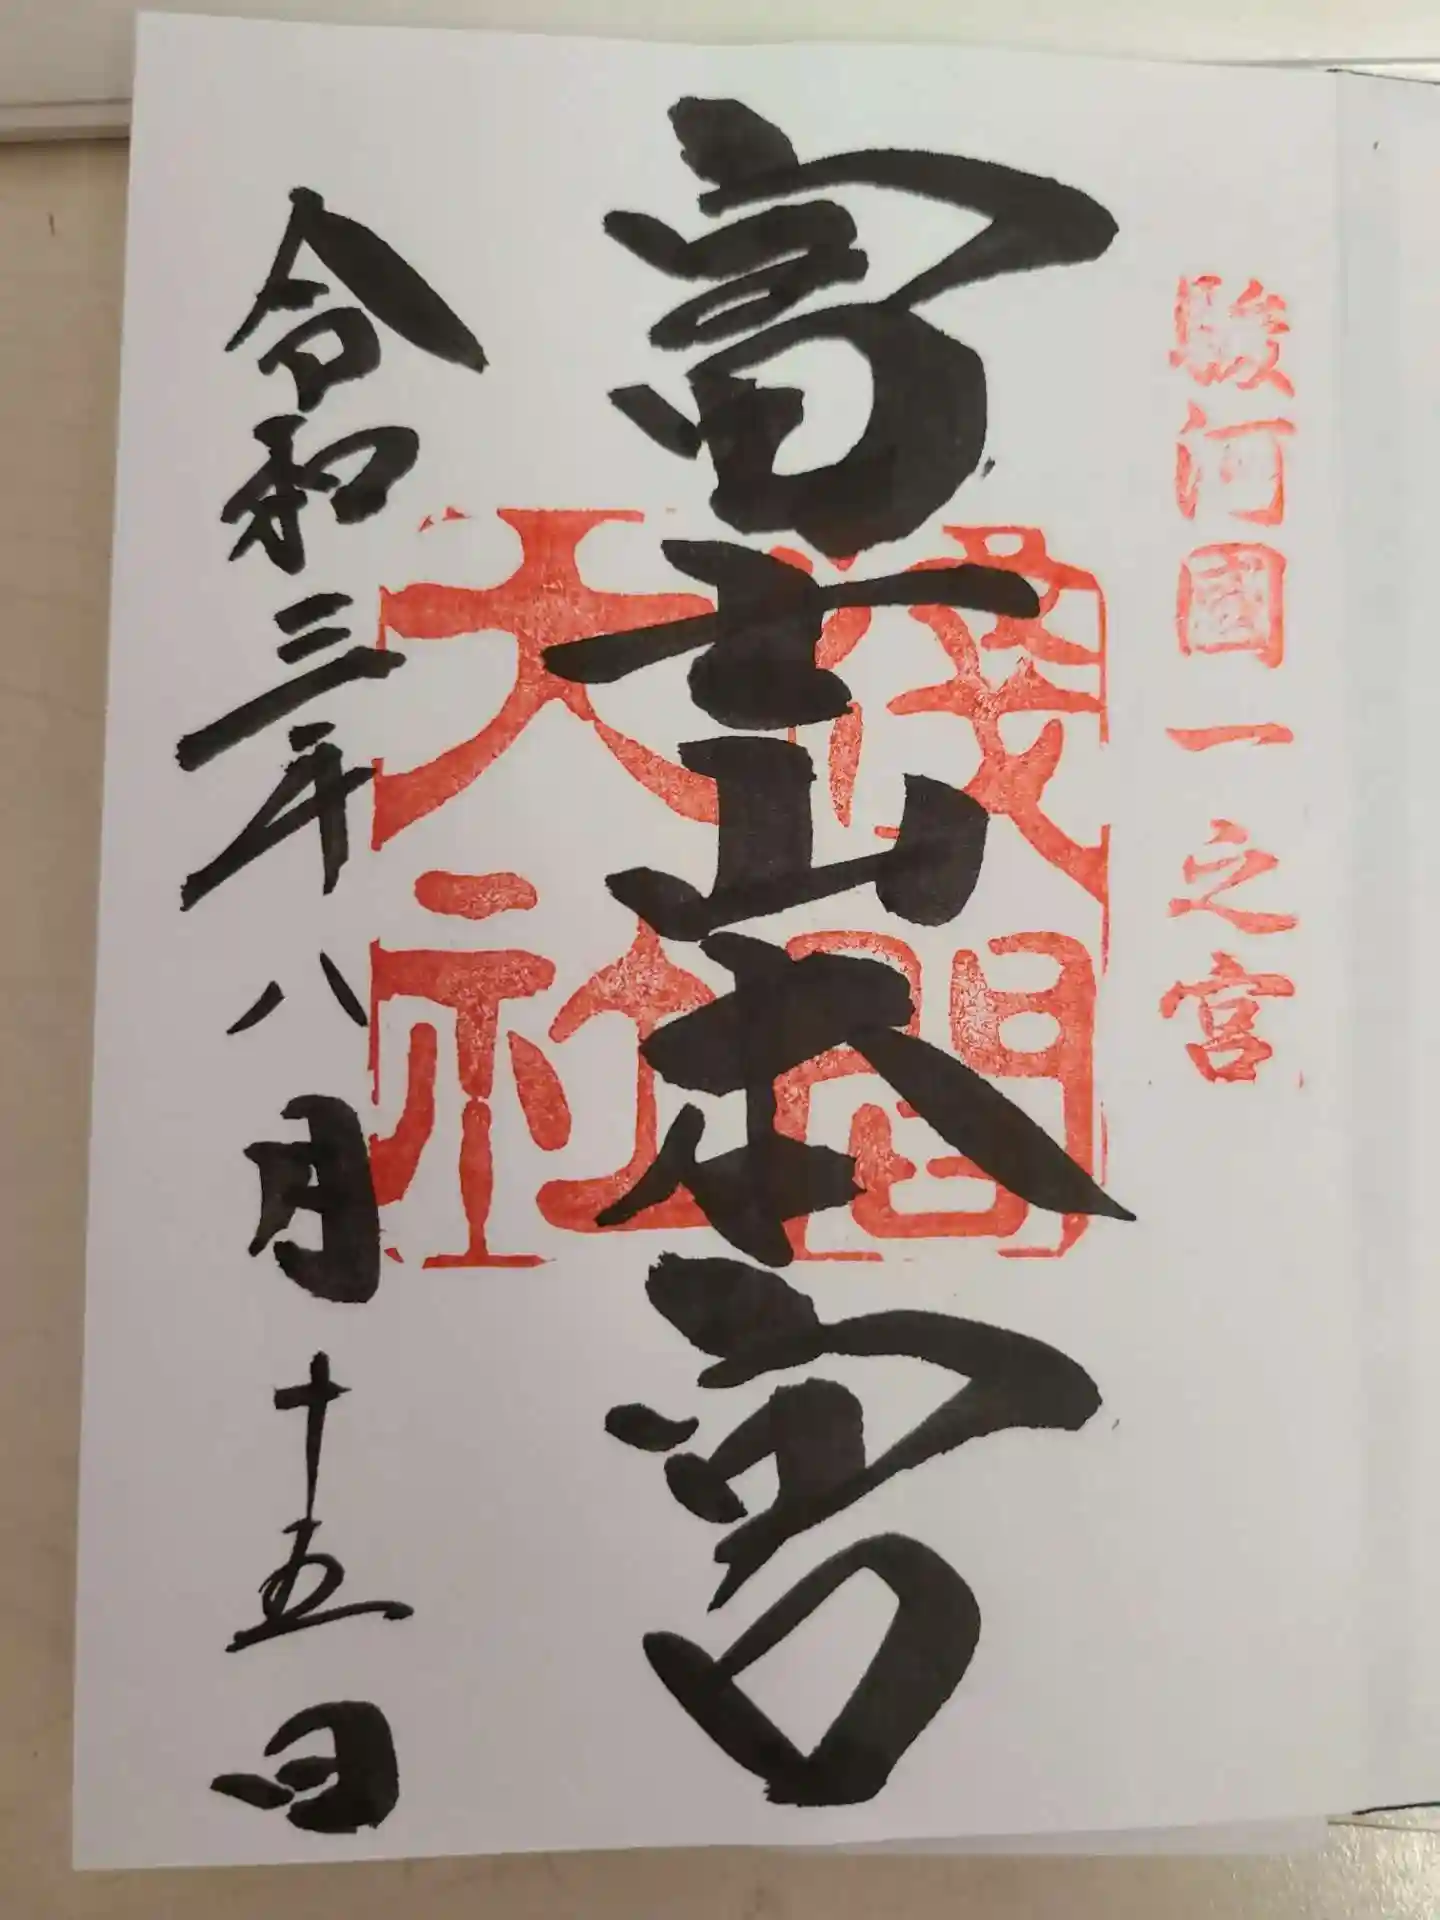 駿河國一之宮
富士山本宮
淺間
大社
令和三年八月十五日